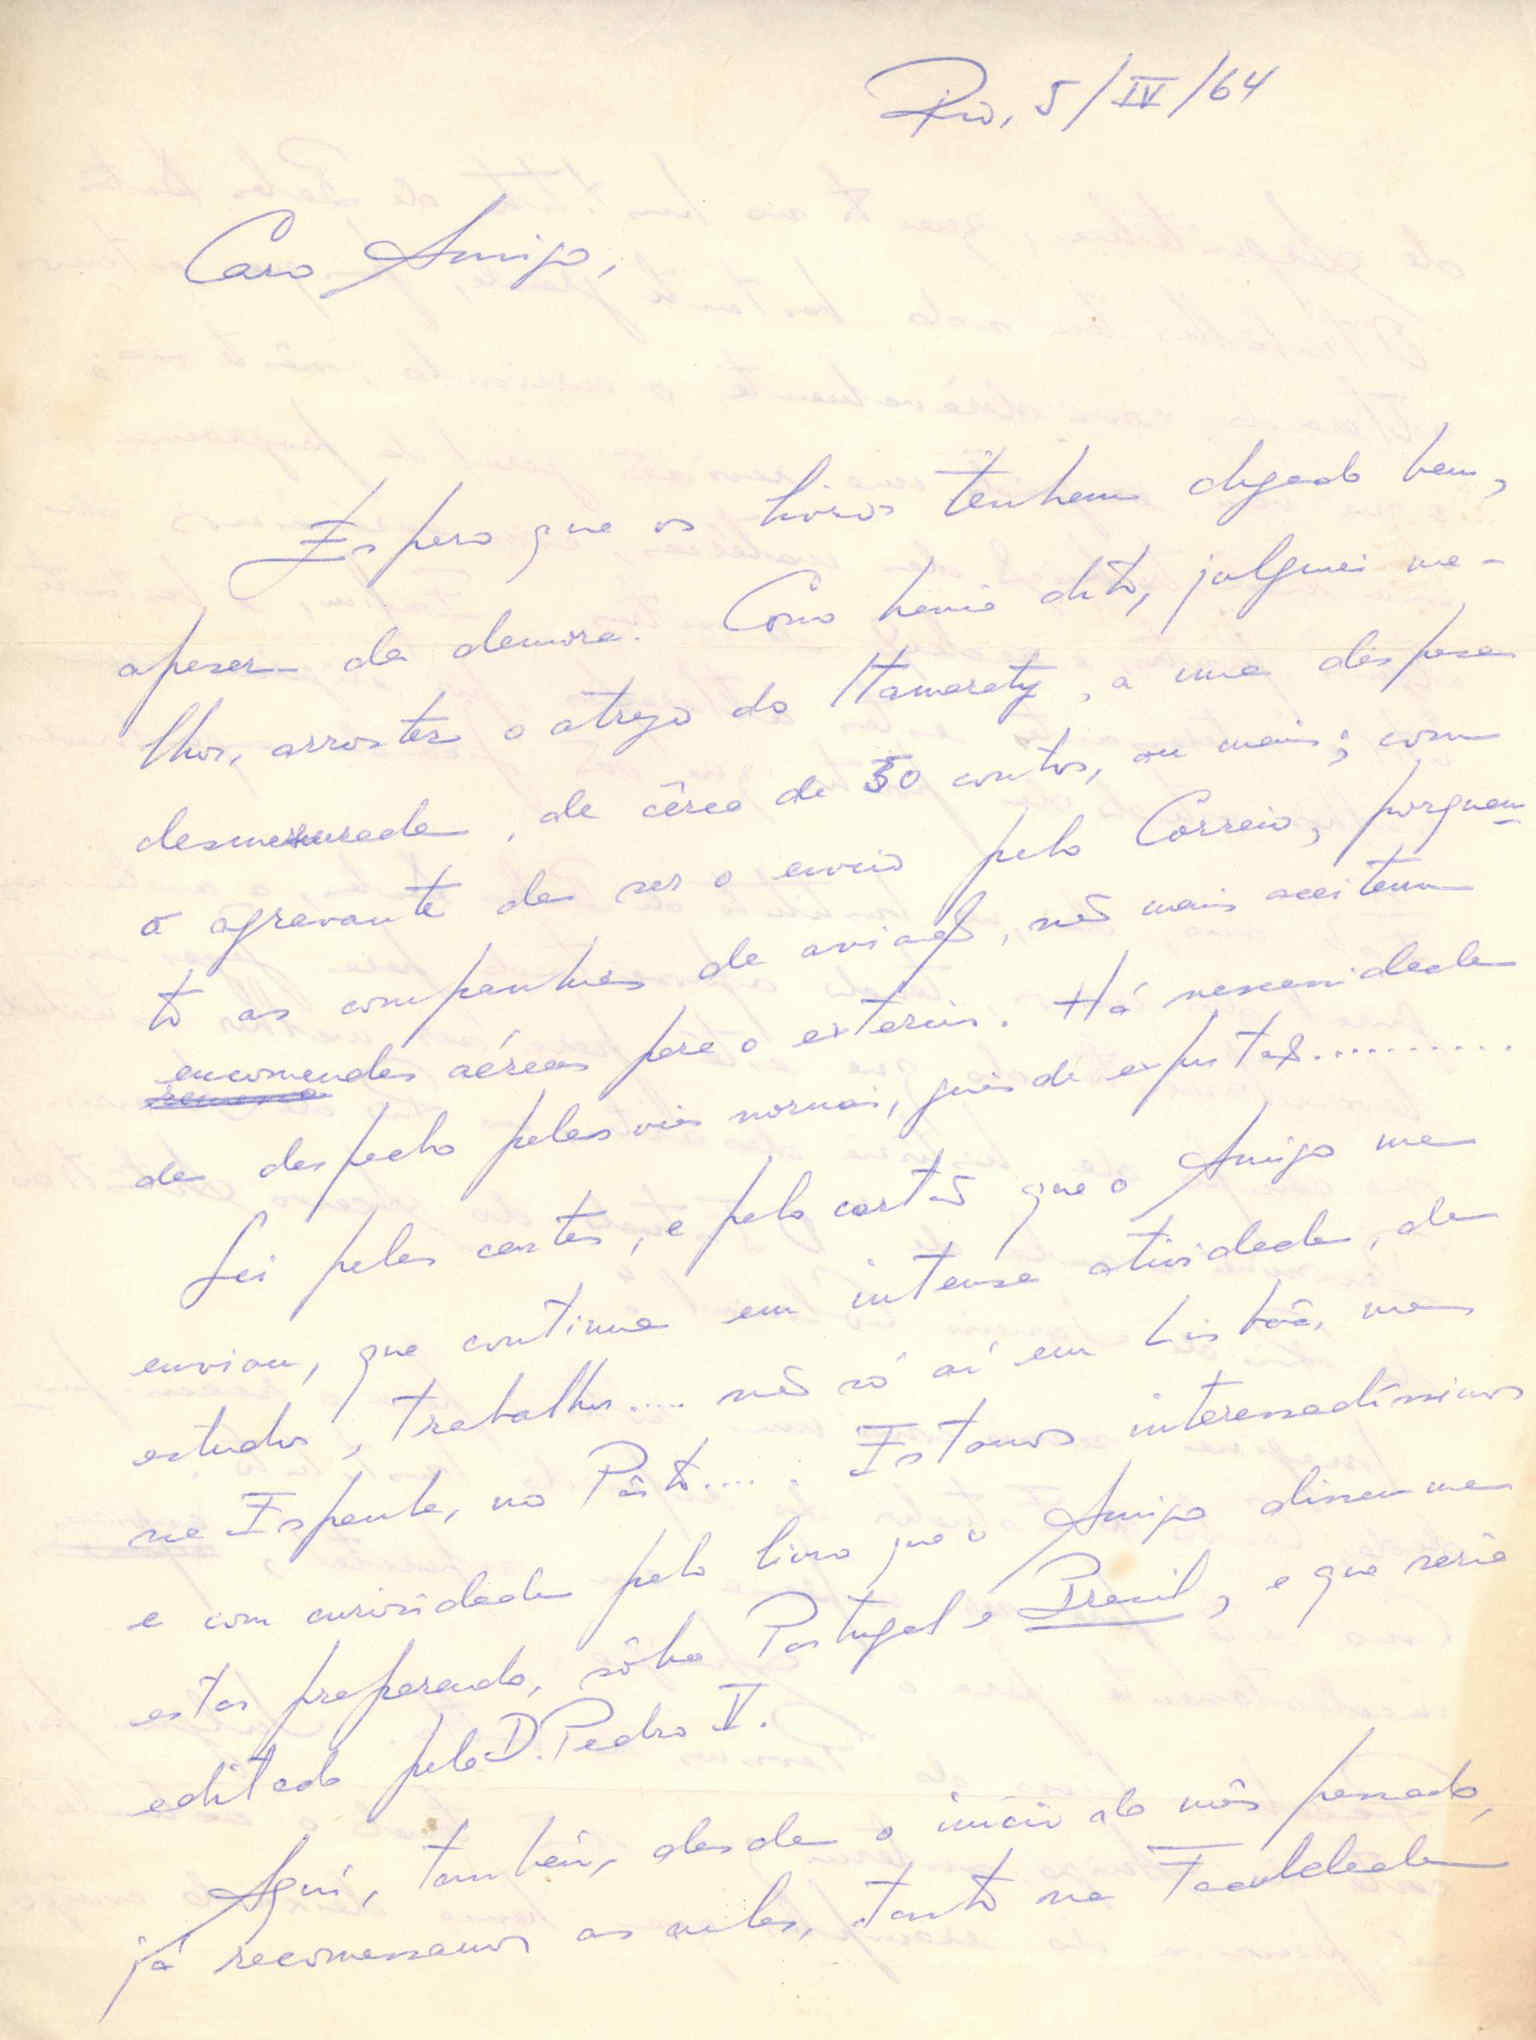 Rio, 5/IV/64
Caro Amigo,
Espero que os livros tenham chegado bem,
apesar da demora. Como havia dito, julguei me-
lhor, arrostar o atrazo do Itamaraty, a uma despesa
desmesurada, de cêrca de 50 contos, ou mais; com
o agravante de ser o envio pelo Correio, porquan-
to as companhias de aviação, não mais aceitam
encomendas aéreas para o exterior. Há necessidade
de despacho pelas vias normais, guias de exportação..........
Sei pelas cartas, e pelo cartão que o Amigo me
enviou, que continua em intensa atividade, de
estudos, trabalhos.... não só aí em Lisbôa, mas
na Espanha, no Pôrto..... Estamos interessadíssimos
e com curiosidade pelo livro que o Amigo disse-me
estar preparando, sôbre Portugal e Brasil, e que seria
editado pelo D. Pedro V.
Aqui, também, desde o início do mês passado,
já recomessamos as aulas, tanto na Faculdade